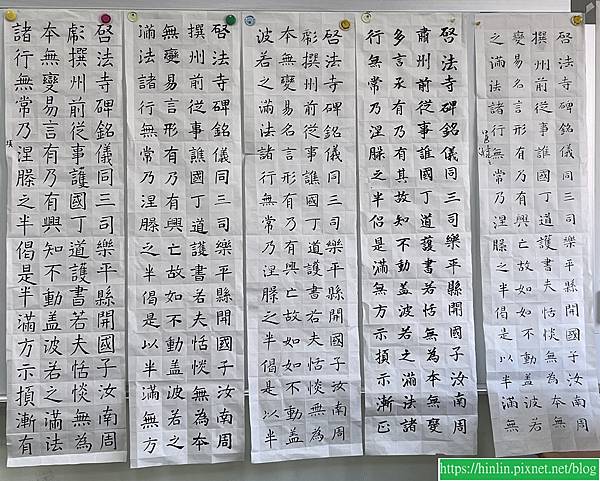 啓法寺碑銘儀同三司樂平縣開國子汝南周
撰州前從事譙國丁道護書夫恬惔無為本無
變易名言形有乃有興亡故如如不動盖波若
之滿法諸行無常乃涅槃之半偈是以半滿無
啓法寺碑銘儀同三司樂平縣開國子汝南周
肅州前從事誰國丁道護書若恬無為本無變
多言承有乃有其故知不動盖波若之滿法諸
行無常乃涅槃之半侶是滿無方示損示漸正
啓法寺碑銘儀同三司樂平縣開國子汝南周
彪撰州前從事譙國丁道護書右夫恬惔無為
本無變易名言形有乃有興亡故如如不動盖
波若之滿法諸行無常乃涅槃之半偈是以半
啓法寺碑銘儀同三司樂平縣開國子汝南周
撰州前從事譙國丁道護書若夫恬惔無為本
無變易言形有乃有興亡故如不動盖波若之
滿法諸行無常乃涅槃之半偈是以半滿無方
啓法寺碑銘儀同三司樂平縣開國子汝南周
彪撰州前從事護國丁道護書若夫恬惔無為
本無變易言有乃有興知不動盖波若之滿法
諸行無常乃涅槃之半偈是半滿方示損漸有
https://hinlin.pixnet.net/blog